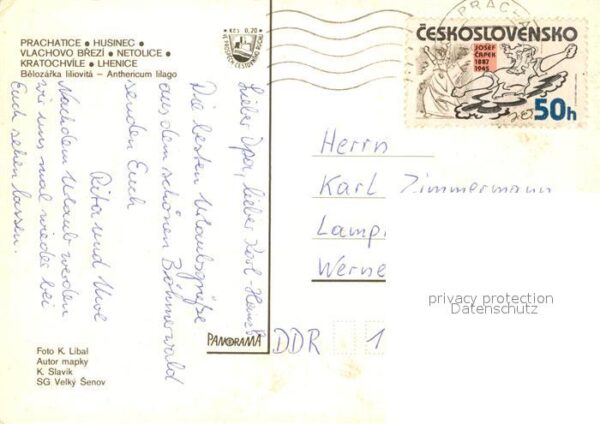 PRACHATICE • HUSINEC •
VLACHOVO BŘEZÍ • NETOLICE •
KRATOCHVÍLE • LHENICE
Bělozářka liliovitá – Anthericum liliago
Kčs 0,20
PRAC
ČESKOSLOVENSKO
JOSEF
ČAPEK
1887
1945
50h
Lieber Opa, lieber Karl-Heinz
Die besten Urlaubsgrüße
aus dem schönen Böhmerwald
senden Euch
Rita und Uwe
Nachdem Urlaub werden
wir uns mal wieder bei
Euch sehen lassen.
Herrn
Karl Zimmermann
Lamp
Werne
DDR 1
PANORAMA
privacy protection
Datenschutz
Foto K. Líbal
Autor mapky
K. Slavík
SG Velký Šenov